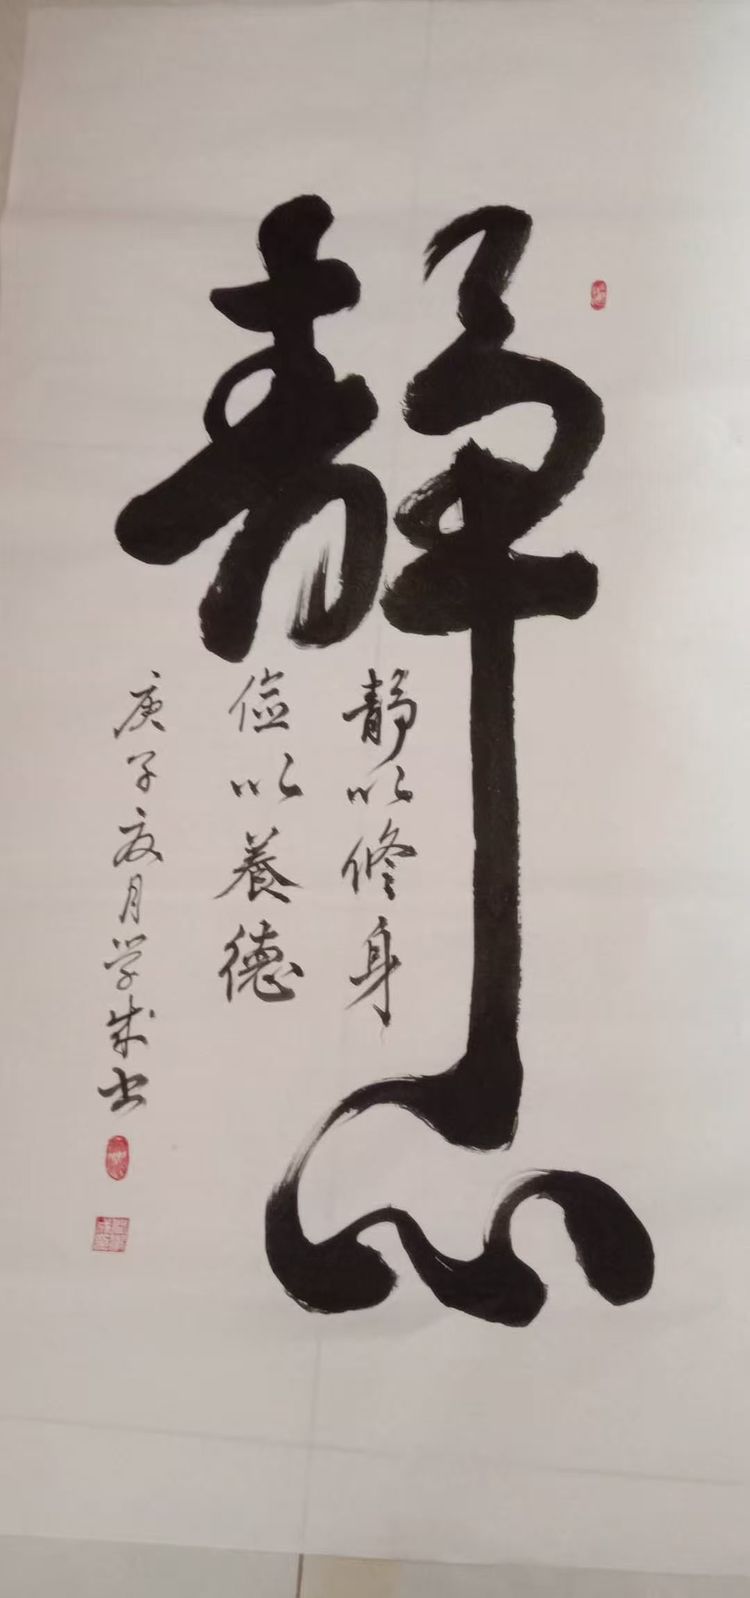 静心
静以修身
俭以養德
庚子夏月学成书